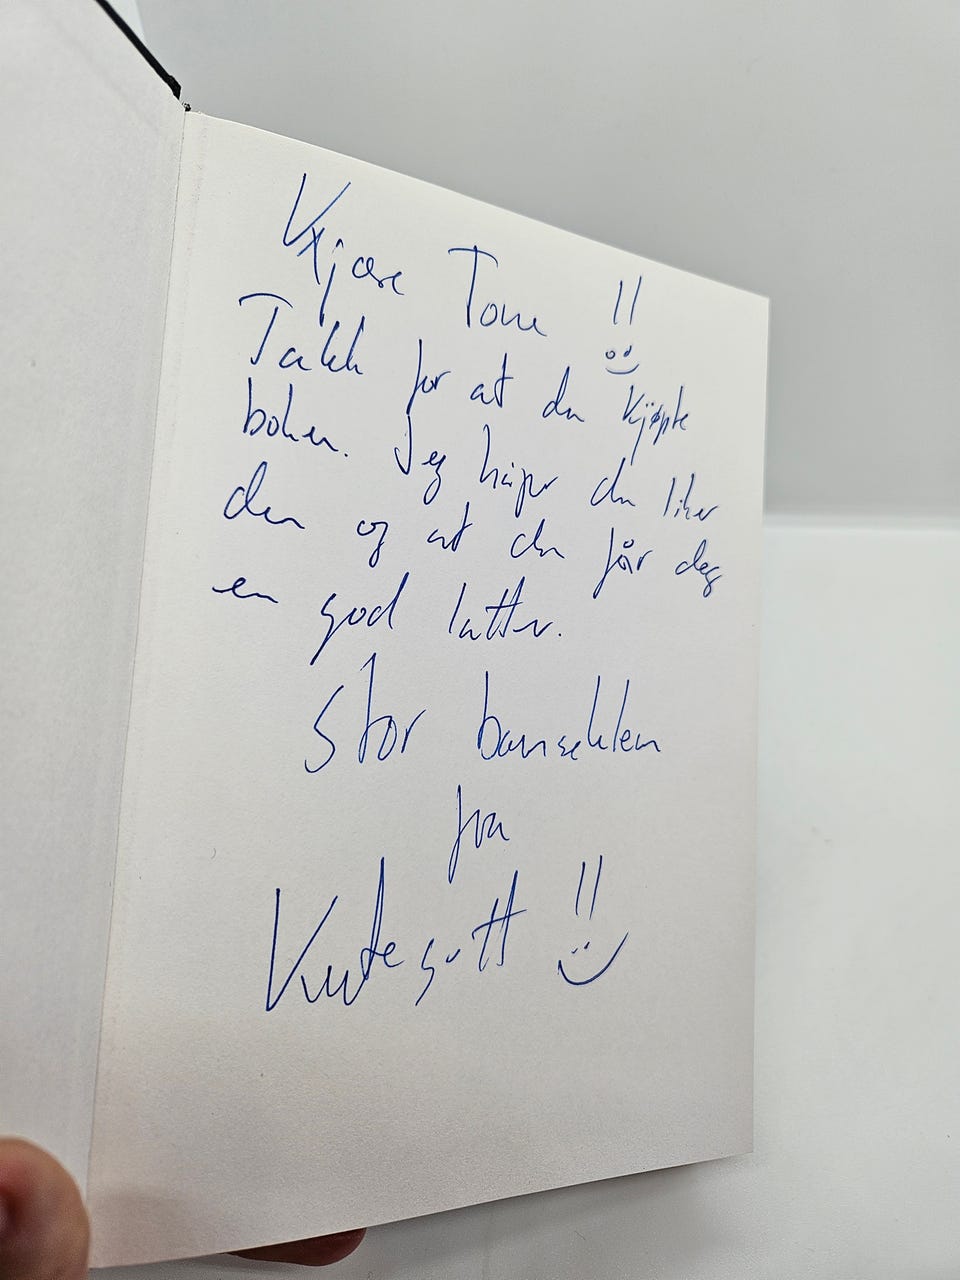 Kjære Tone !!
Takk for at du kjøpte
boken. Jeg håper du liker
den og at du får deg
en god latter.
Stor bamseklem
fra
Kutegutt !!